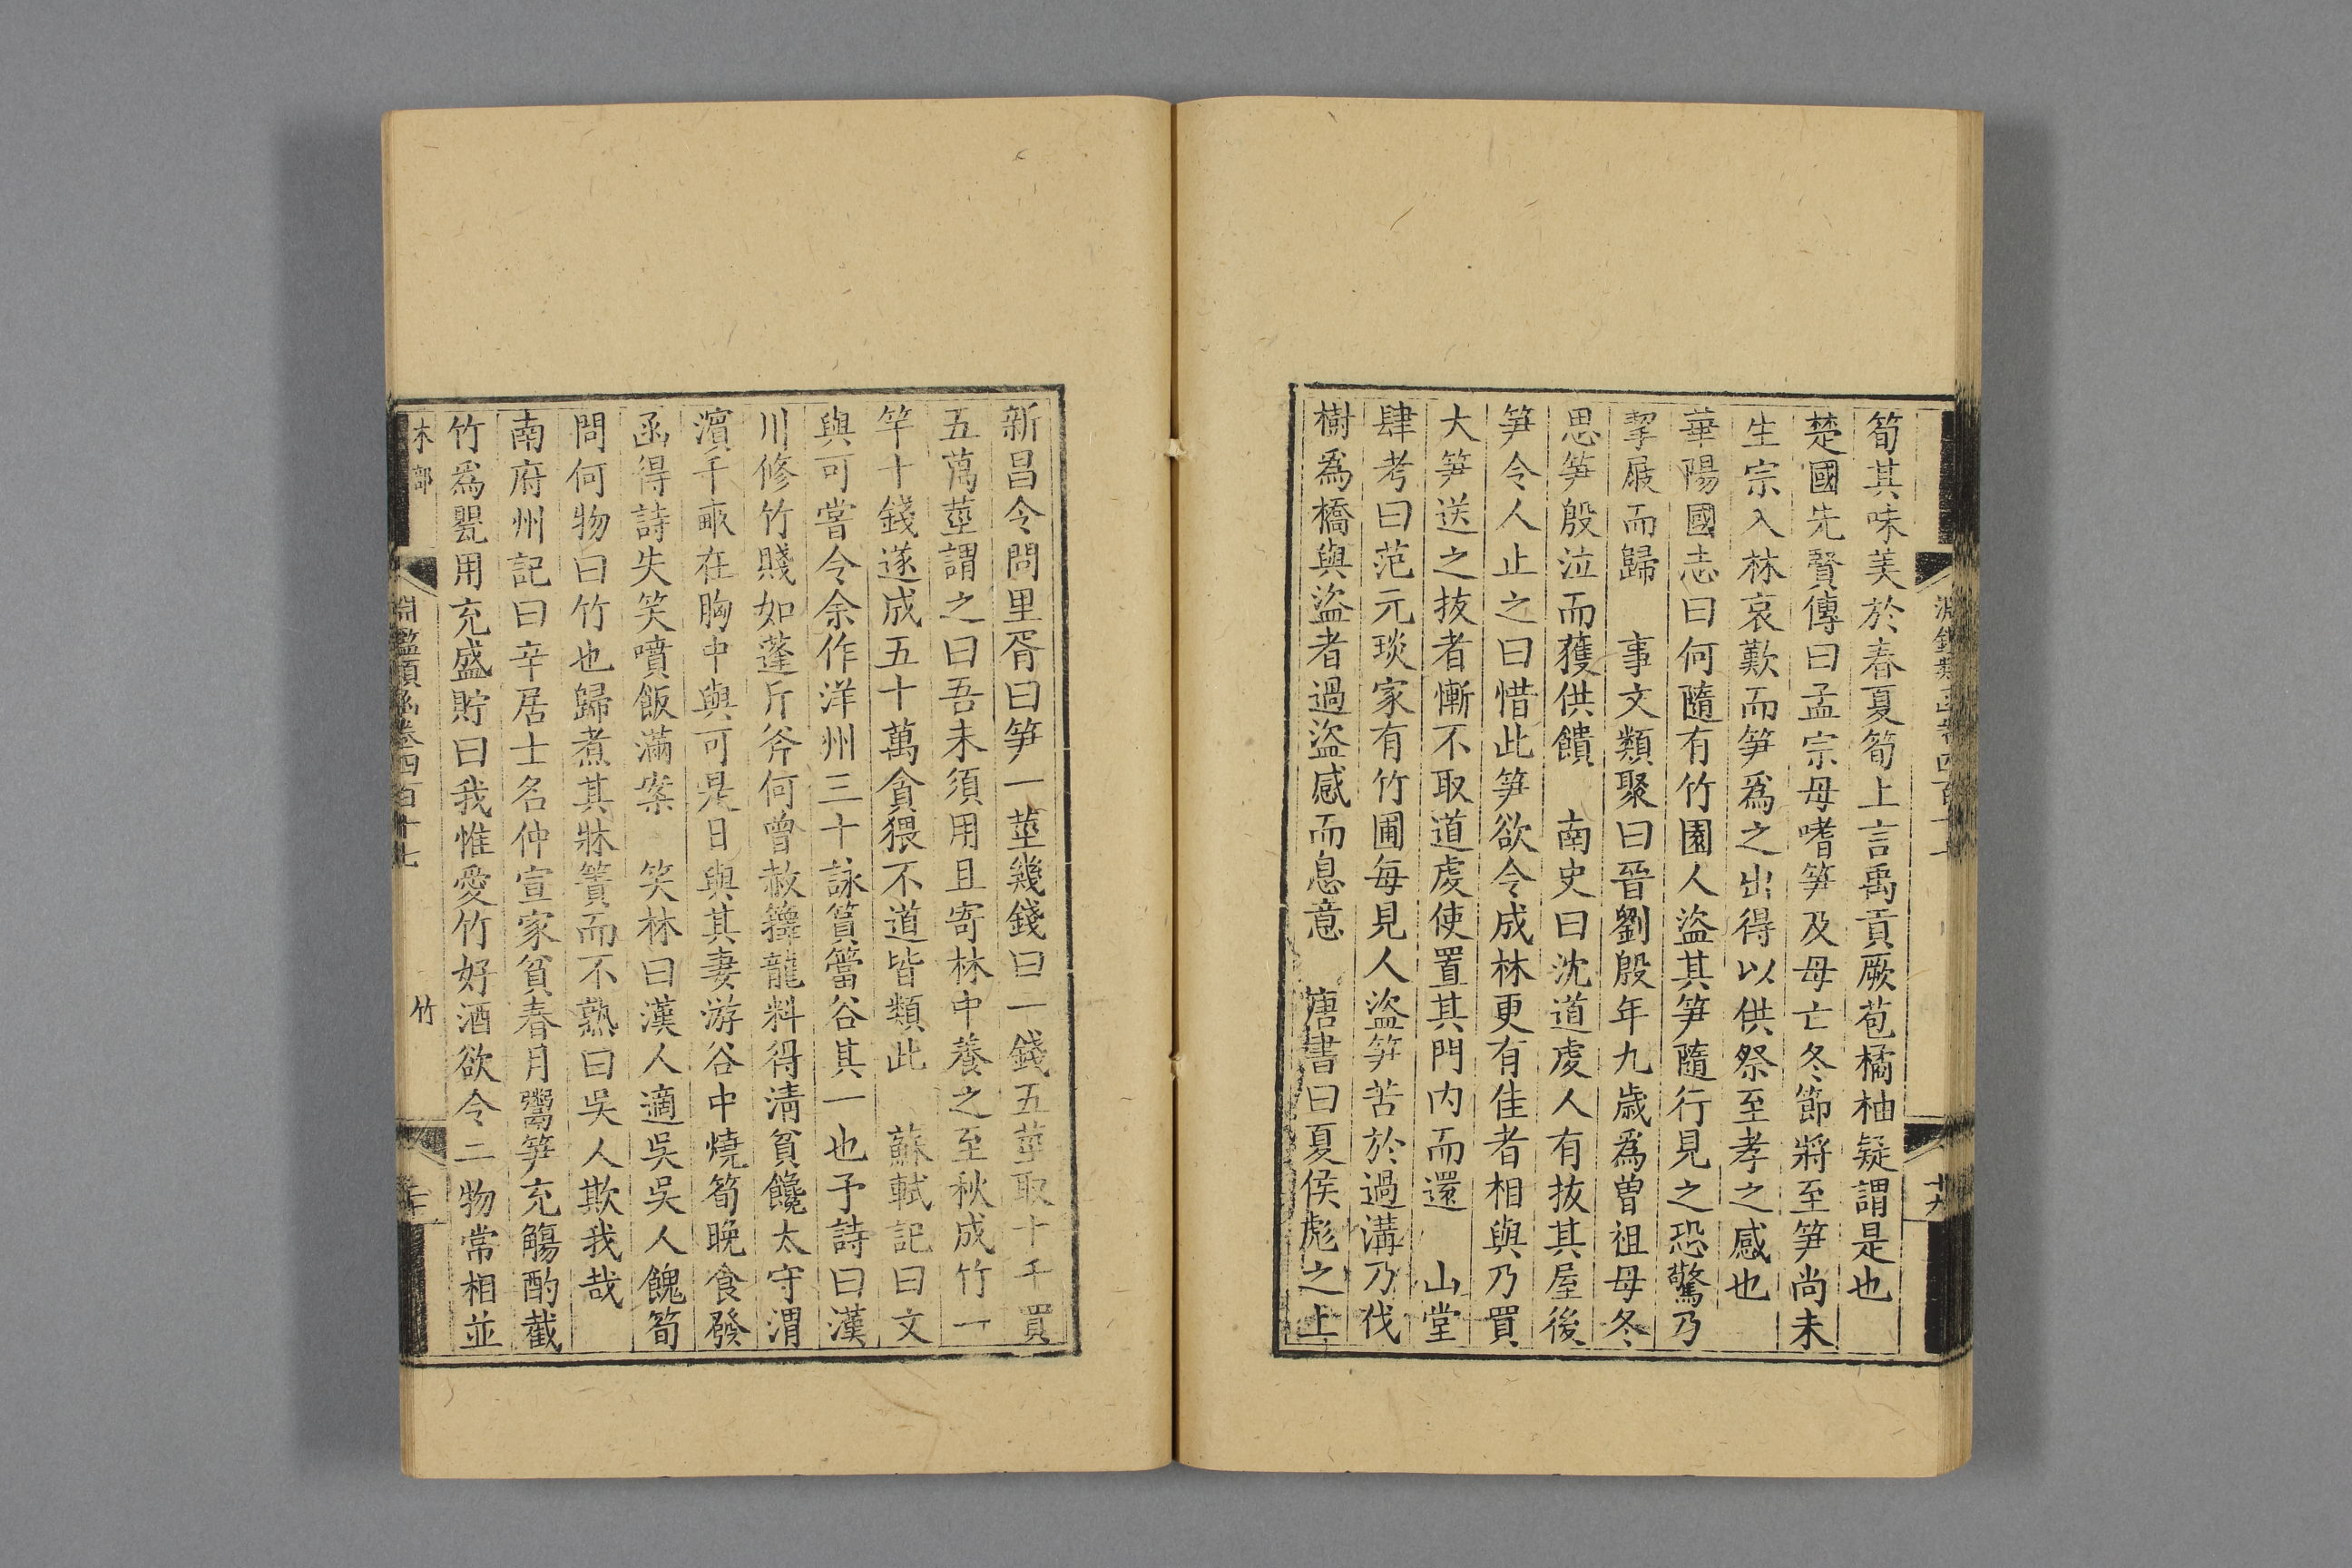 筍其味美於春夏筍上言禹貢厥苞橘柚疑謂是也
楚國先賢傳曰孟宗母嗜笋及母亡冬節將至笋尚未
生宗入林哀歎而笋爲之出得以供祭至孝之感也
華陽國志曰何隨有竹園人盜其笋隨行見之恐驚乃
挈屐而歸　事文類聚曰晉劉殷年九歲爲曾祖母冬
思笋殷泣而獲供饋　南史曰沈道虔人有拔其屋後
笋令人止之曰惜此笋欲令成林更有佳者相與乃買
大笋送之拔者慚不取道虔使置其門内而還　山堂
肆考曰范元琰家有竹圃每見人盜笋苦於過溝乃伐
樹爲橋與盜者過盜感而息意　唐書曰夏侯彪之上
新昌令問里胥曰笋一莖幾錢曰一錢五莖取十千買
五萬莖謂之曰吾未須用且寄林中養之至秋成竹一
竿十錢遂成五十萬貪猥不道皆類此　蘇軾記曰文
與可嘗令余作洋州三十詠篔簹谷其一也予詩曰漢
川修竹賤如蓬斤斧何曾赦籜龍料得清貧饞太守渭
濱千畝在胸中與可是日與其妻游谷中燒筍晚食發
函得詩失笑噴飯滿案　笑林曰漢人適吳吳人餽筍
問何物曰竹也歸煮其牀簀而不熟曰吳人欺我哉
南府州記曰辛居士名仲宣家貧春月鬻笋充觴酌截
竹爲甖用充盛貯曰我惟愛竹好酒欲令二物常相並
木部
淵鑑類函卷四百十七
竹